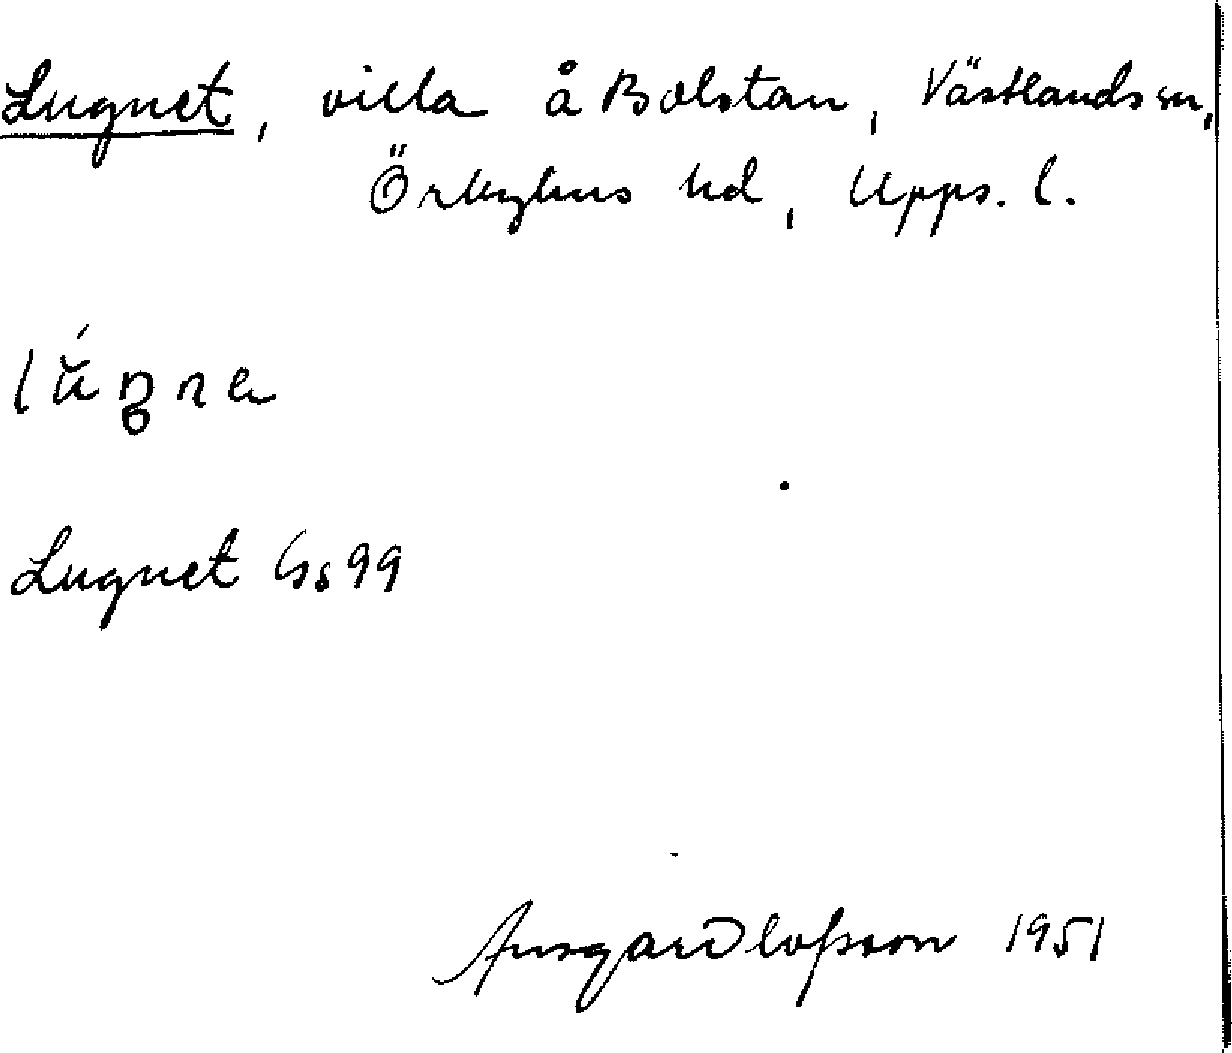 Lugnet, villa å Bolstan, Västlands sn,
Örbyhus hd, Upps. l.
Lugnet Gs 99
Ansgar Olofsson 1951